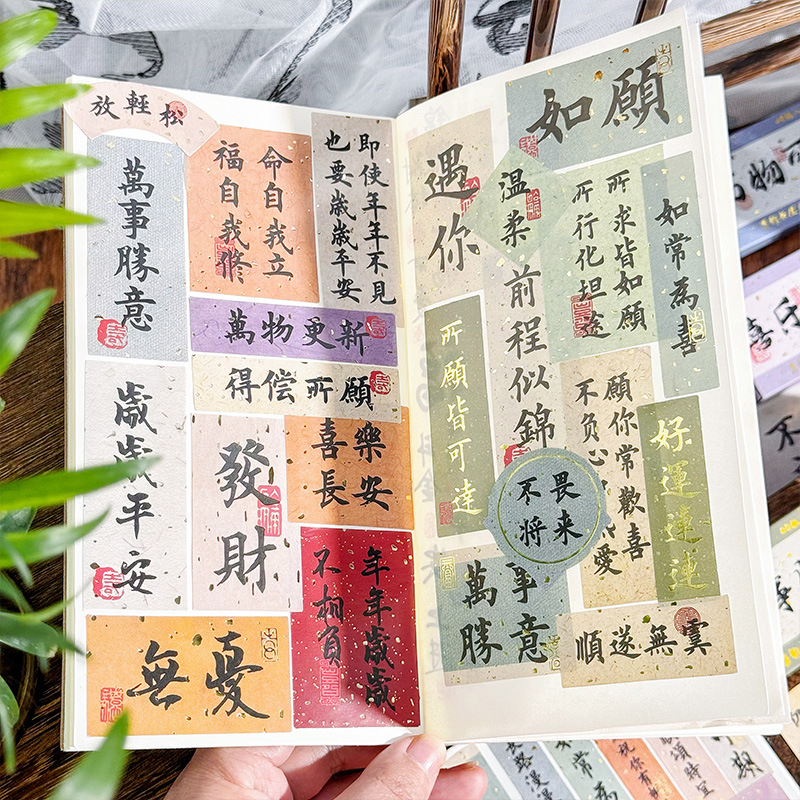 放輕松
萬事勝意
命自我立
福自我修
即使年年不見
也要歲歲平安
萬物更新
得偿所願
歲歲平安
發財
樂安
喜長
年年歲歲
不相負
無憂
如願
遇你
温柔
所求皆如願
所行化坦途
如常為喜
前程似錦
所願皆可達
願你常歡喜
不負心
愛
好運連連
畏来
不将
萬事
勝意
順遂無虞
萬物
喜乐
不
長路漫漫
如常為
祝你有
頌時宜